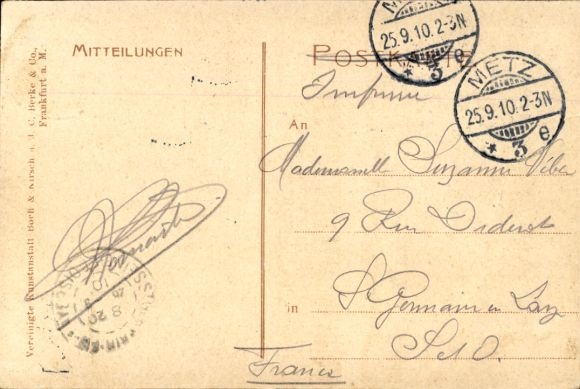 Vereinigte Kunstanstalt Boeh & Kirsch u. J. C. Berke & Co.,
Frankfurt a. M.
MITTEILUNGEN
POSTKARTE
METZ
25.9.10.2-3N
* 3 e
METZ
25.9.10.2-3N
* 3 e
Imprimé
An
Mademoiselle Suzanne Véber
9 Rue Diderot
in
St Germain en Laye
S et O.
France